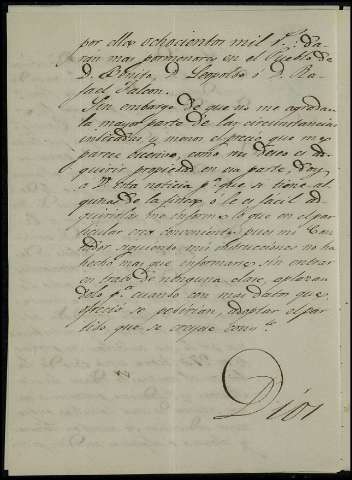 por ellas ochocientos mil r.s da
ran mas pormenores en el Pueblo de
D. D. Leopoldo ó D. Ra
fael Talon.
Sin embargo de que no me agradan
la mayor parte de las circunstancias
indicadas, y menos el precio que me
parece escesivo, como mi deseo es ad
quirir propiedad en esa parte, doy
a V. esta noticia p.a que si tiene al
guna de la finca, ó le es facil ad
quirirla, me informe lo que en el par
ticular crea conveniente, pues mi
siguiendo mis instrucciones no ha
hecho mas que informarse sin entrar
en trato de ninguna clase, aplazan
dolo p.a cuando con mas datos que
ofrecio se pedirian, adoptar el par
tido que se creyese conv.te
Dios